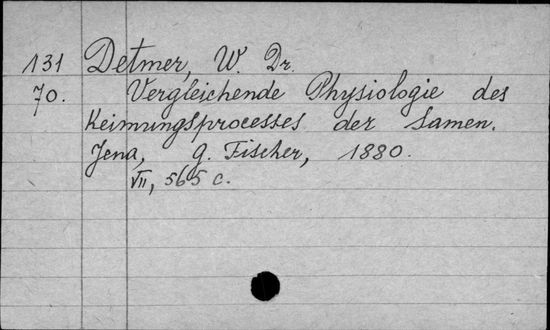 131 Detmer, W. Dr.
70. Vergleichende Physiologie des
Keimungsprocesses der Samen.
Jena, G. Fischer, 1880.
VII, 565 c.